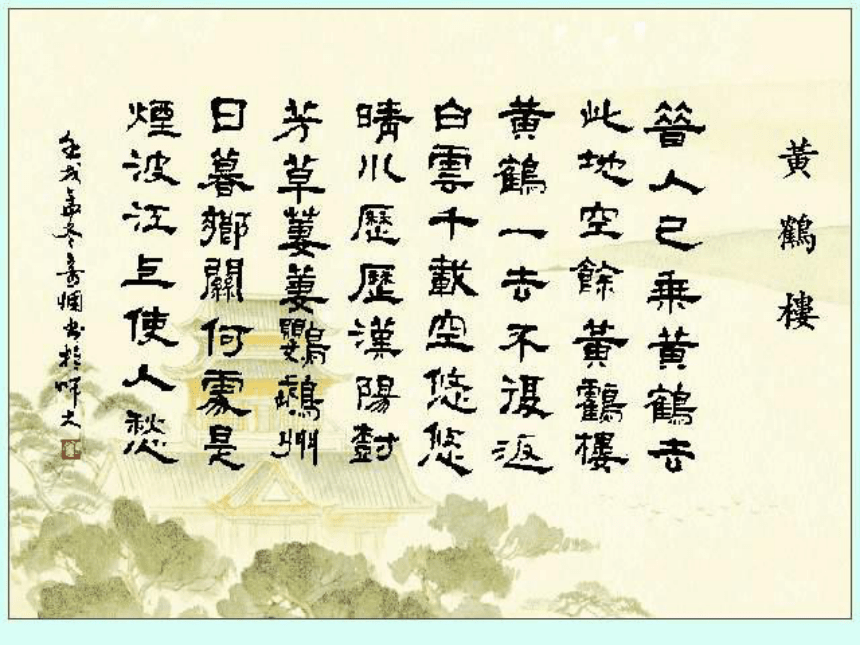 黃鶴樓
昔人已乘黃鶴去
此地空餘黃鶴樓
黃鶴一去不復返
白雲千載空悠悠
晴川歷歷漢陽樹
芳草萋萋鸚鵡州
日暮鄉關何處是
煙波江上使人愁
壬戌孟冬書於師大